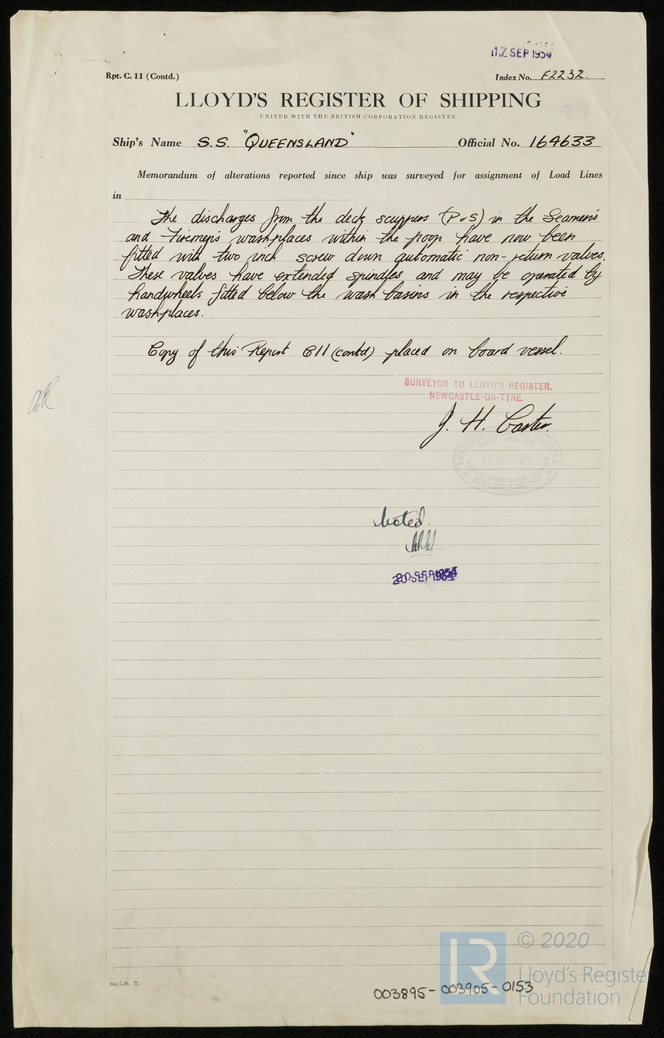 17 SEP 1954
Rpt. C. 11 (Contd.)
Index No. F2232
LLOYD'S REGISTER OF SHIPPING
UNITED WITH THE BRITISH CORPORATION REGISTER
Ship's Name S.S. "QUEENSLAND" Official No. 164633
Memorandum of alterations reported since ship was surveyed for assignment of Load Lines
in
The discharges from the deck scuppers (P & S) in the Seamen's
and Firemen's washplaces within the poop have now been
fitted with two inch screw down automatic non-return valves.
These valves have extended spindles and may be operated by
handwheels fitted below the wash basins in the respective
washplaces.
Copy of this Report C11 (contd) placed on board vessel.
SURVEYOR TO LLOYD'S REGISTER,
NEWCASTLE-ON-TYNE.
J. H. Carter.
Noted.
20 SEP 1954
© 2020
Lloyd's Register
Foundation
003895-003905-0153